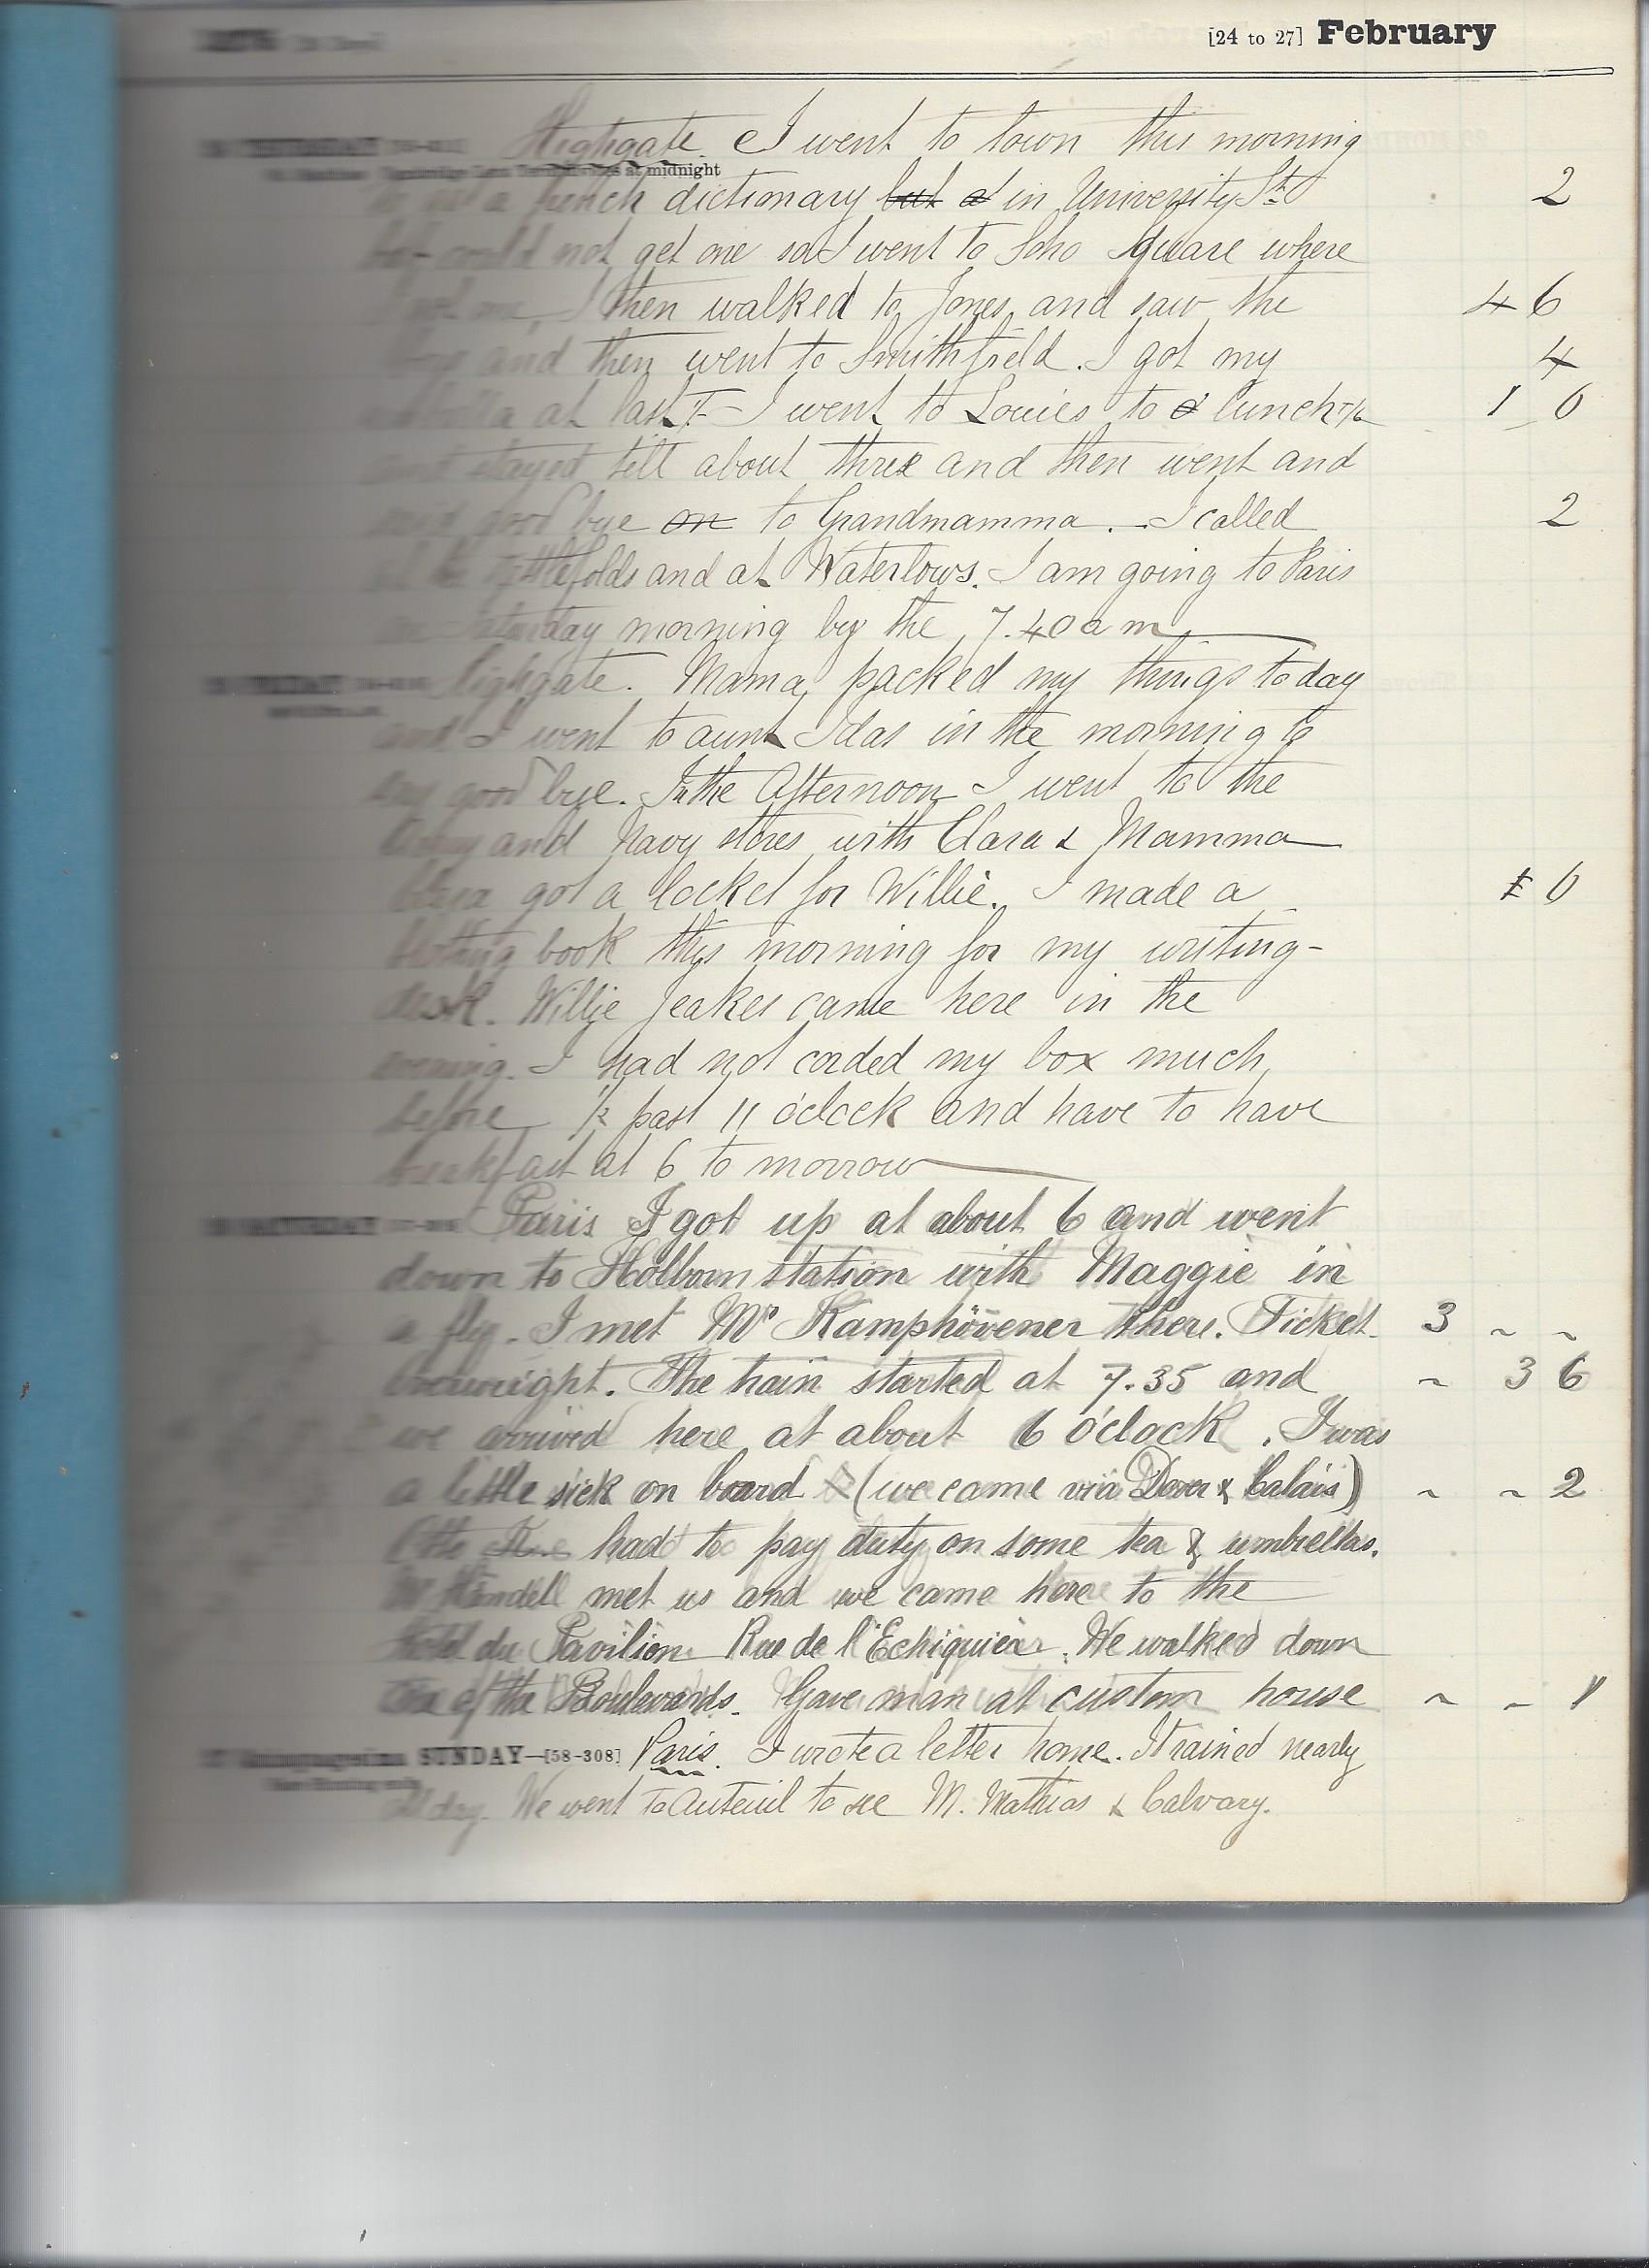 [24 to 27] February
Highgate. I went to town this morning
midnight
a french dictionary but a in University St. 2
but could not get one so I went to Soho Square where
I then walked to Jones and saw the 4 6
and then went to Smithfield. I got my 4
at last. I went to Louies to a lunch 1 0
stayed till about three and then went and
said good bye on to Grandmamma. I called 2
and at Waterlows. I am going to Paris
Saturday morning by the 7.40 a m
Highgate. Mama packed my things today
and I went to aunt Idas in the morning to
say good bye. In the Afternoon I went to the
Army and Navy stores with Clara & Mamma
got a locket for Willie. I made a 0
blotting book this morning for my writing-
desk. Willie Jeakes came here in the
evening. I had not corded my box much
before 1/2 past 11 o'clock and have to have
breakfast at 6 to morrow
SATURDAY Paris I got up at about 6 and went
down to Holborn station with Maggie in
a fly. I met Mr Kamphövener there. Ticket 3 ~ ~
Overweight. The train started at 7.35 and ~ 3 6
we arrived here at about 6 o'clock. I was
a little sick on board (we came via Dover & Calais) ~ ~ 2
Otto had to pay duty on some tea & umbrellas.
met us and we came here to the
Hotel du Pavilion Rue de l'Echiquier. We walked down
one of the Boulevards. Gave man at custom house ~ ~ 1
SUNDAY—[58-308] Paris. I wrote a letter home. It rained nearly
all day. We went to Auteuil to see M. Mathias & Calvary.